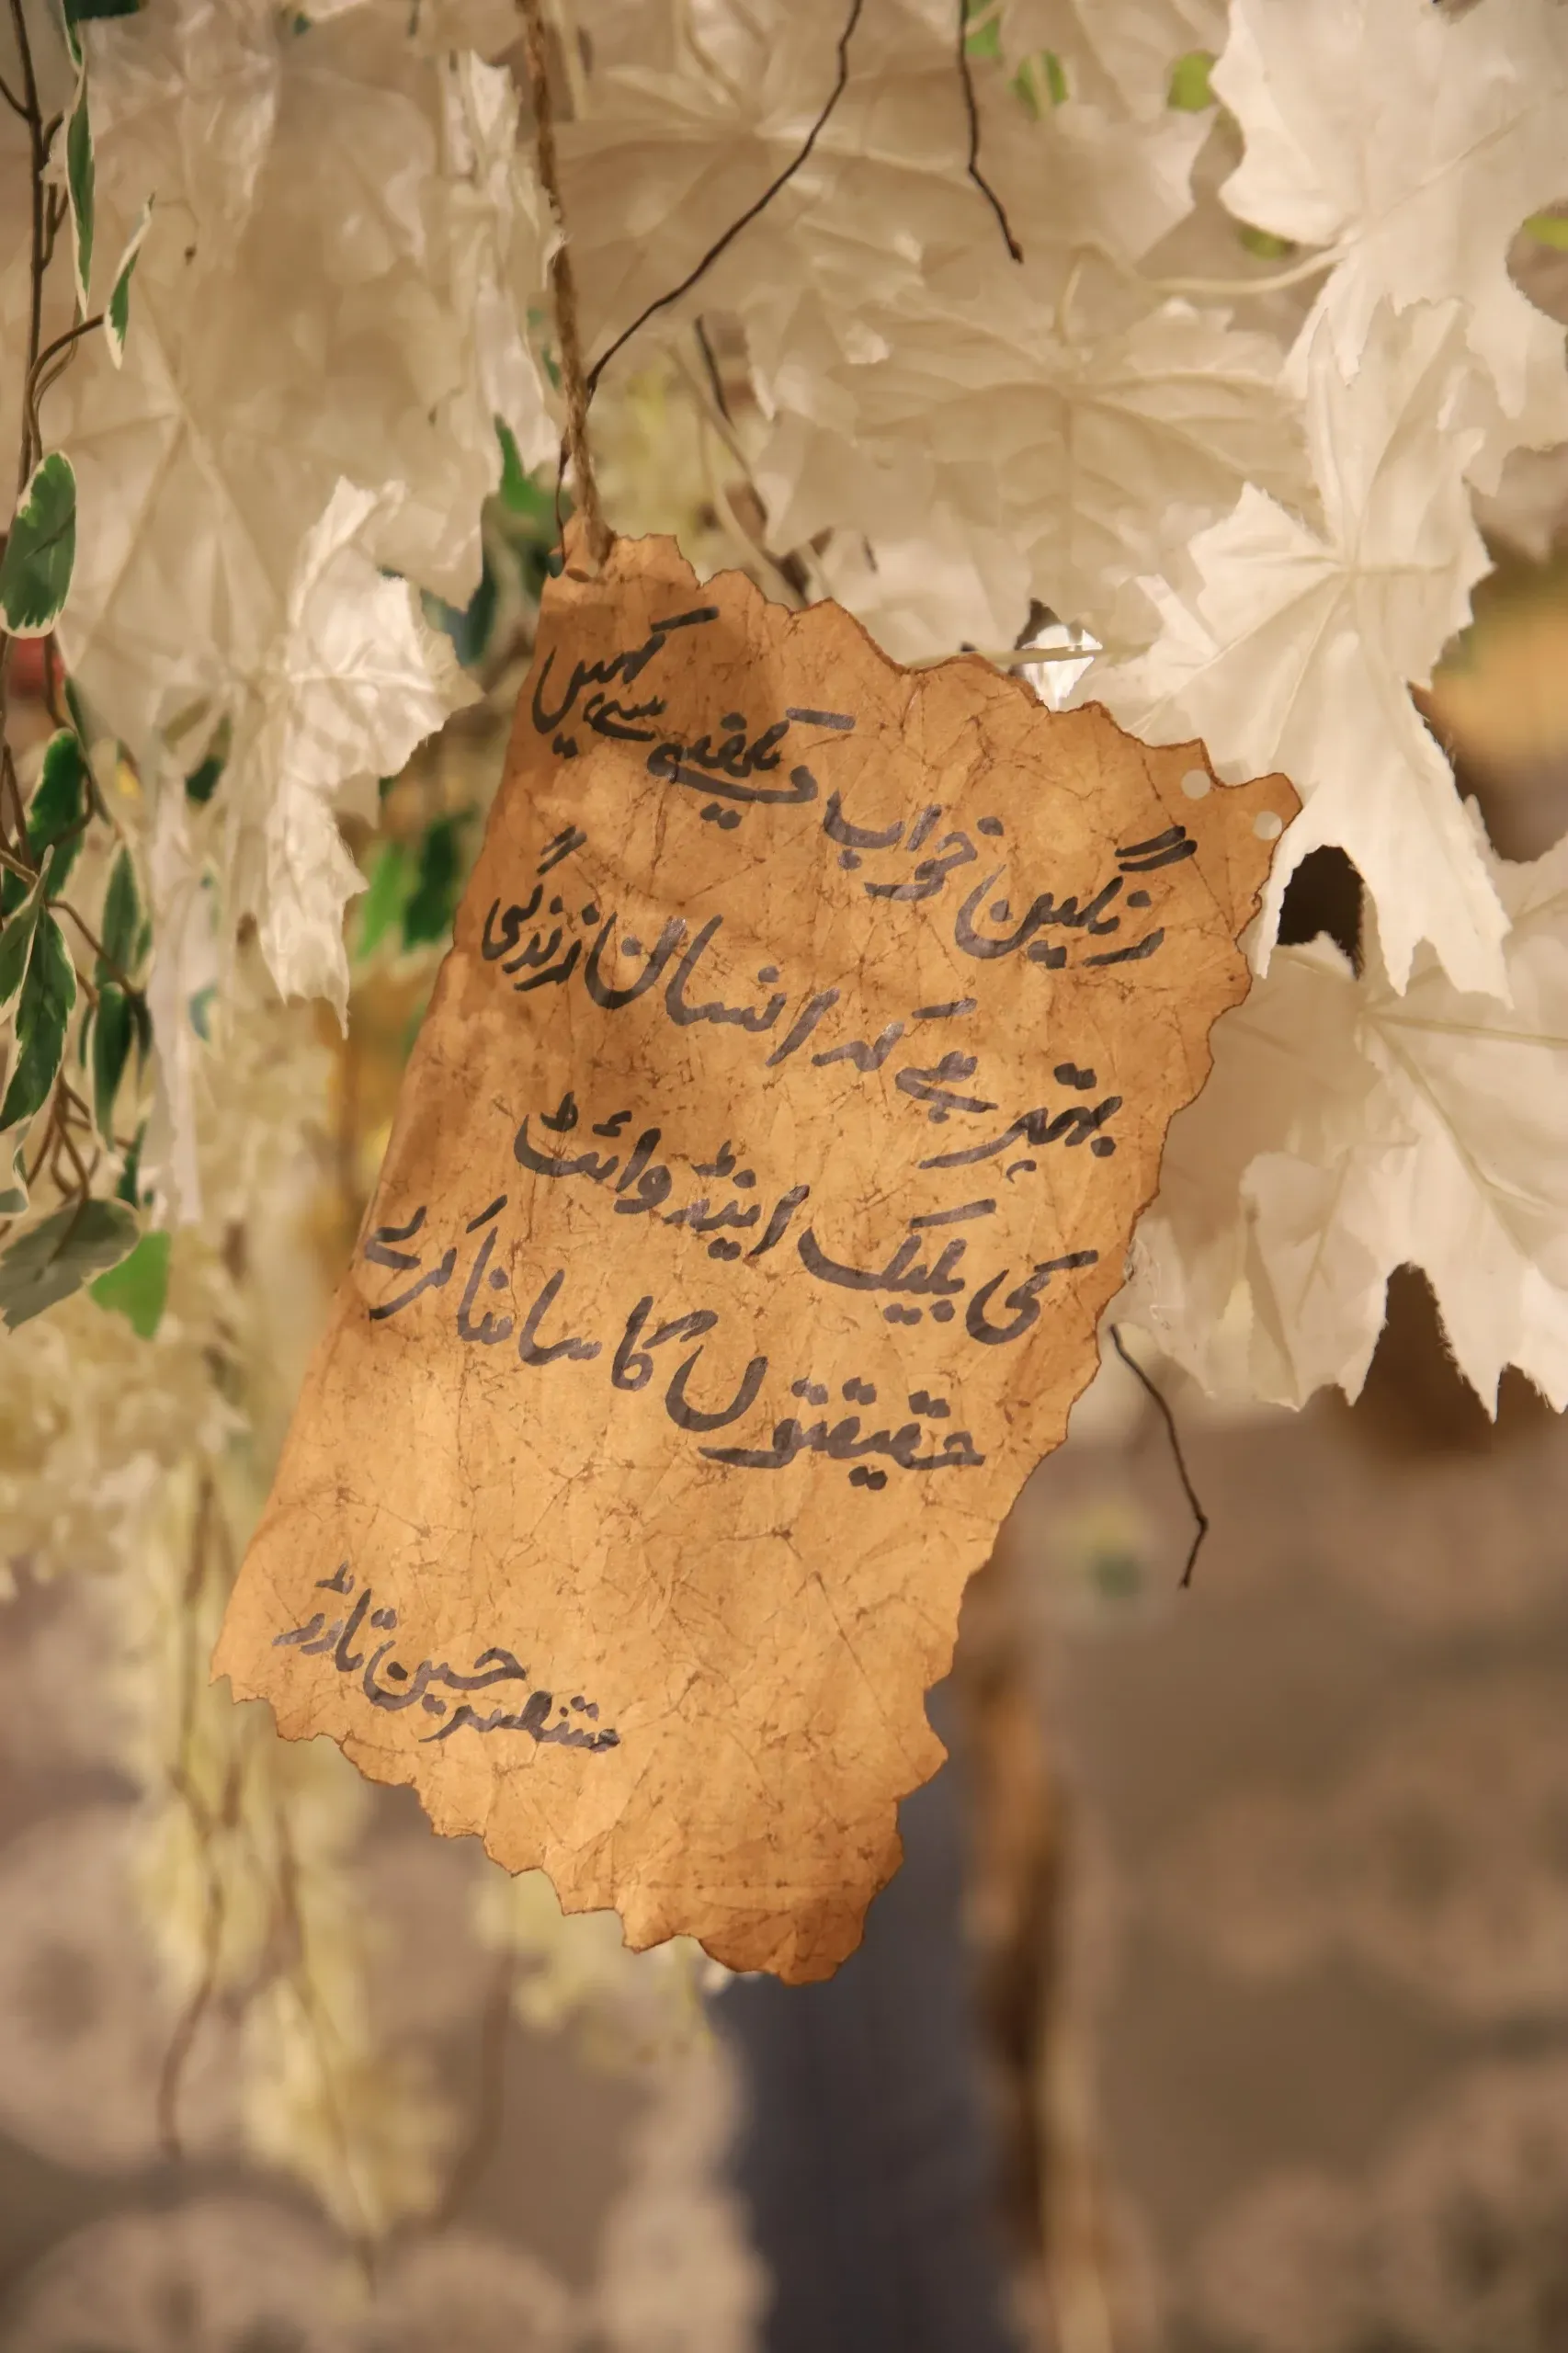 رنگین خواب دیکھنے سے کہیں
بہتر ہے کہ انسان زندگی
کی بلیک اینڈ وائٹ
حقیقتوں کا سامنا کرے
مستنصر حسین تارڑ